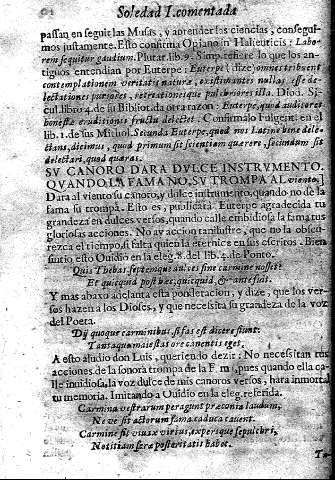 Soledad I. comentada
passan en seguir las Musas, y aprender las ciencias, conseguimos
justamente. Esto confirma Opiano in Halieuticis: Laborem
sequitur gaudium. Plutar. lib. 9. Simp. refiere lo que los antiguos
entendian por Euterpe: Euterpe (dize) omnes tribuent
contemplationem veritatis naturæ, existimantes nullas esse delectationes
puriores, recreationesque pulchriores illa. Diod. Sicul.
libro 4. de su Bibliot. da otra razon: Euterpe, quod auditores
honestæ eruditionis fructu delectet. Confirmalo Fulgent. en el
lib. 1. de sus Mithol. Secunda Euterpe, quod nos Latine bene delectans,
dicimus, quod primum sit scientiam quærere, secundum sit
delectari, quod quæras.
SV CANORO DARA DVLCE INSTRVMENTO,
QVANDO LA FAMA NO, SV TROMPA AL viento.]
Dara al viento su canoro, y dulce instrumento, quando no de la
fama su trompa. Esto es, publicarà Euterpe agradecida tu
grandeza en dulces versos, quando calle embidiosa la fama tus
gloriosas acciones. No ay accion tan ilustre, que no la obscurezca
el tiempo, si falta quien la eternice en sus escritos. Bien
sintio esto Ouidio en la eleg. 8. del lib. 4. de Ponto.
Quis Thebas septenque duces sine carmine nosset?
Et quicquid post hæc, quicquid, & ante fuit.
Y mas abaxo adelanta esta ponderacion, y dize, que los versos
hazen a los Dioses, y que necesita su grandeza de la voz
del Poeta.
Dij quoque carminibus, si fas est dicere, fiunt:
Tantaque maiestas ore canentis eget.
A esto aludio don Luis, queriendo dezir: No necesitan tus
acciones de la sonora trompa de la Fama, pues quando ella calle
inuidiosa, la voz dulce de mis canoros versos, hara inmortal
tu memoria. Imitando a Ouidio en la eleg. referida.
Carmina vestrarum peragunt præconia laudum,
Ne ve sit actorum fama caduca cauent.
Carmine fit viuax virtus, expersque sepulcri,
Notitiam seræ posteritatis habet.